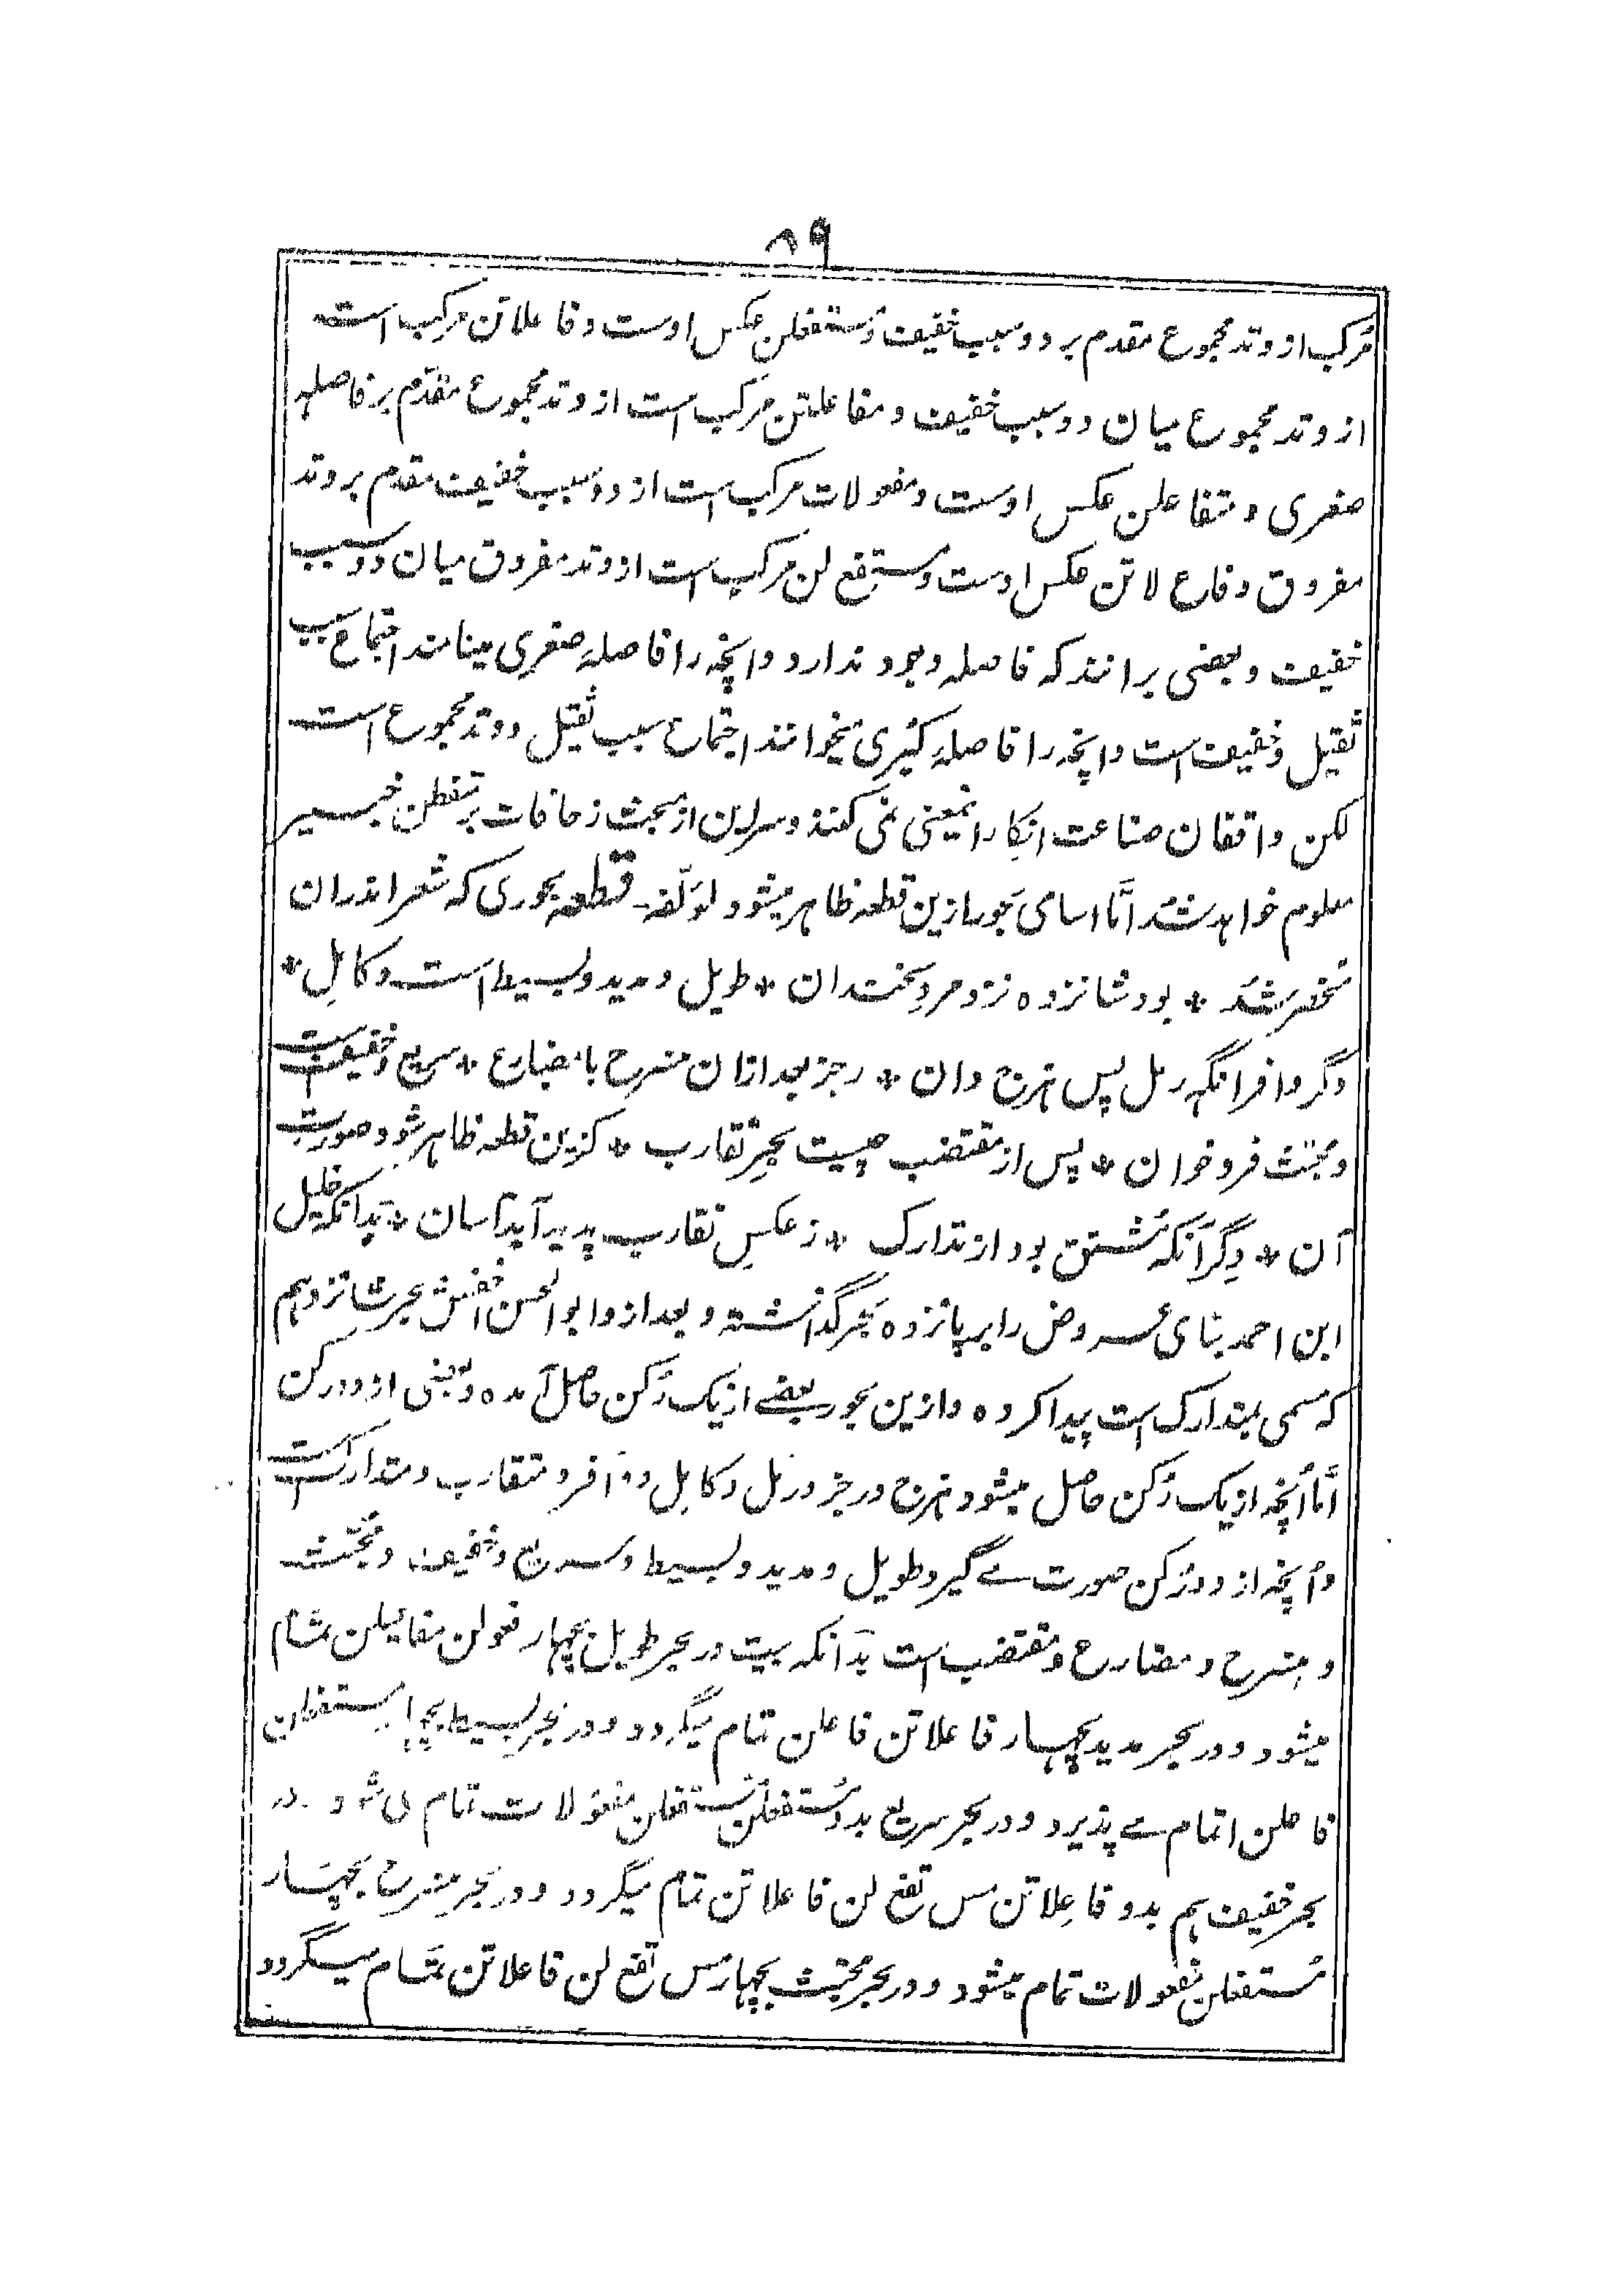 ۸۹
مرکب از وتد مجموع مقدم بر دو سبب خفیف و مستفعلن عکس اوست و فاعلاتن مرکب است
از وتد مجموع میان دو سبب خفیف و مفاعلتن مرکب است از وتد مجموع مقدّم بر فاصلهٔ
صغری و متفاعلن عکس اوست و مفعولات مرکب است از دو سبب خفیف مقدم بر وتد
مفروق و فاع لاتن عکس اوست و مستفع لن مرکب است از وتد مفروق میان دو سبب
خفیف و بعضی برانند که فاصله وجود ندارد و انچه را فاصلهٔ صغری مینامند اجتماع سبب
ثقیل و خفیف است و انچه را فاصلهٔ کبری میخوانند اجتماع سبب ثقیل و وتد مجموع است
لکن واقفان صناعت انکار اینمعنی نمی کنند و سر این از مبحث زحافات بر متفطن خبیر
معلوم خواهد شد امّا اسامی بحور ازین قطعه ظاهر میشود لمؤلّفه قطعه بحوری که شعر اندران
منحصر شد * بود شانزده نزد مردِ سخندان * طویل و مدید و بسیط است و کاملِ *
دگر وافر انگه رمل پس هزج دان * رجز بعد ازان منسرح با مضارع * سریع و خفیف است
و مجتث فرو خوان * پس از مقتضب چیست بحرِ تقارب * کزین قطعه ظاهر شود صورتِ
آن * دِگر آنکه مشتق بود از تدارک * ز عکسِ تقارب پدید آید آسان * بدانکه خلیل
ابن احمد بنای عروض را بر پانزده بحر گذاشته و بعد ازو ابو الحسن اخفش بحر شانزدهم
که مسمی بمتدارک است پیدا کرده و ازین بحور بعضے از یک رُکن حاصل آمده و بعضی از دو رکن
امّا انچه از یک رُکن حاصل میشود هزج و رجز و رمل و کامل و وافر و متقارب و متدارک است
و انچه از دو رُکن صورت مے گیرد طویل و مدید و بسیط و سریع و خفیف و مجتث
و منسرح و مضارع و مقتضب است بدانکه بیت در بحر طویل بچهار فعولن مفاعیلن تمام
میشود و در بحر مدید بچهار فاعلاتن فاعلن تمام میگردد و در بحرِ بسیط بچهار مستفعلن
فاعلن اتمام مے پذیرد و در بحر سریع بدو مستفعلن مستفعلن مفعولات تمام می شود و در
بحر خفیف هم بدو فاعلاتن مس تفع لن فاعلاتن تمام میگردد و در بحر منسرح بچهار
مستفعلن مفعولات تمام میشود و در بحر مجتث بچهار مس تفع لن فاعلاتن تمام میگردد